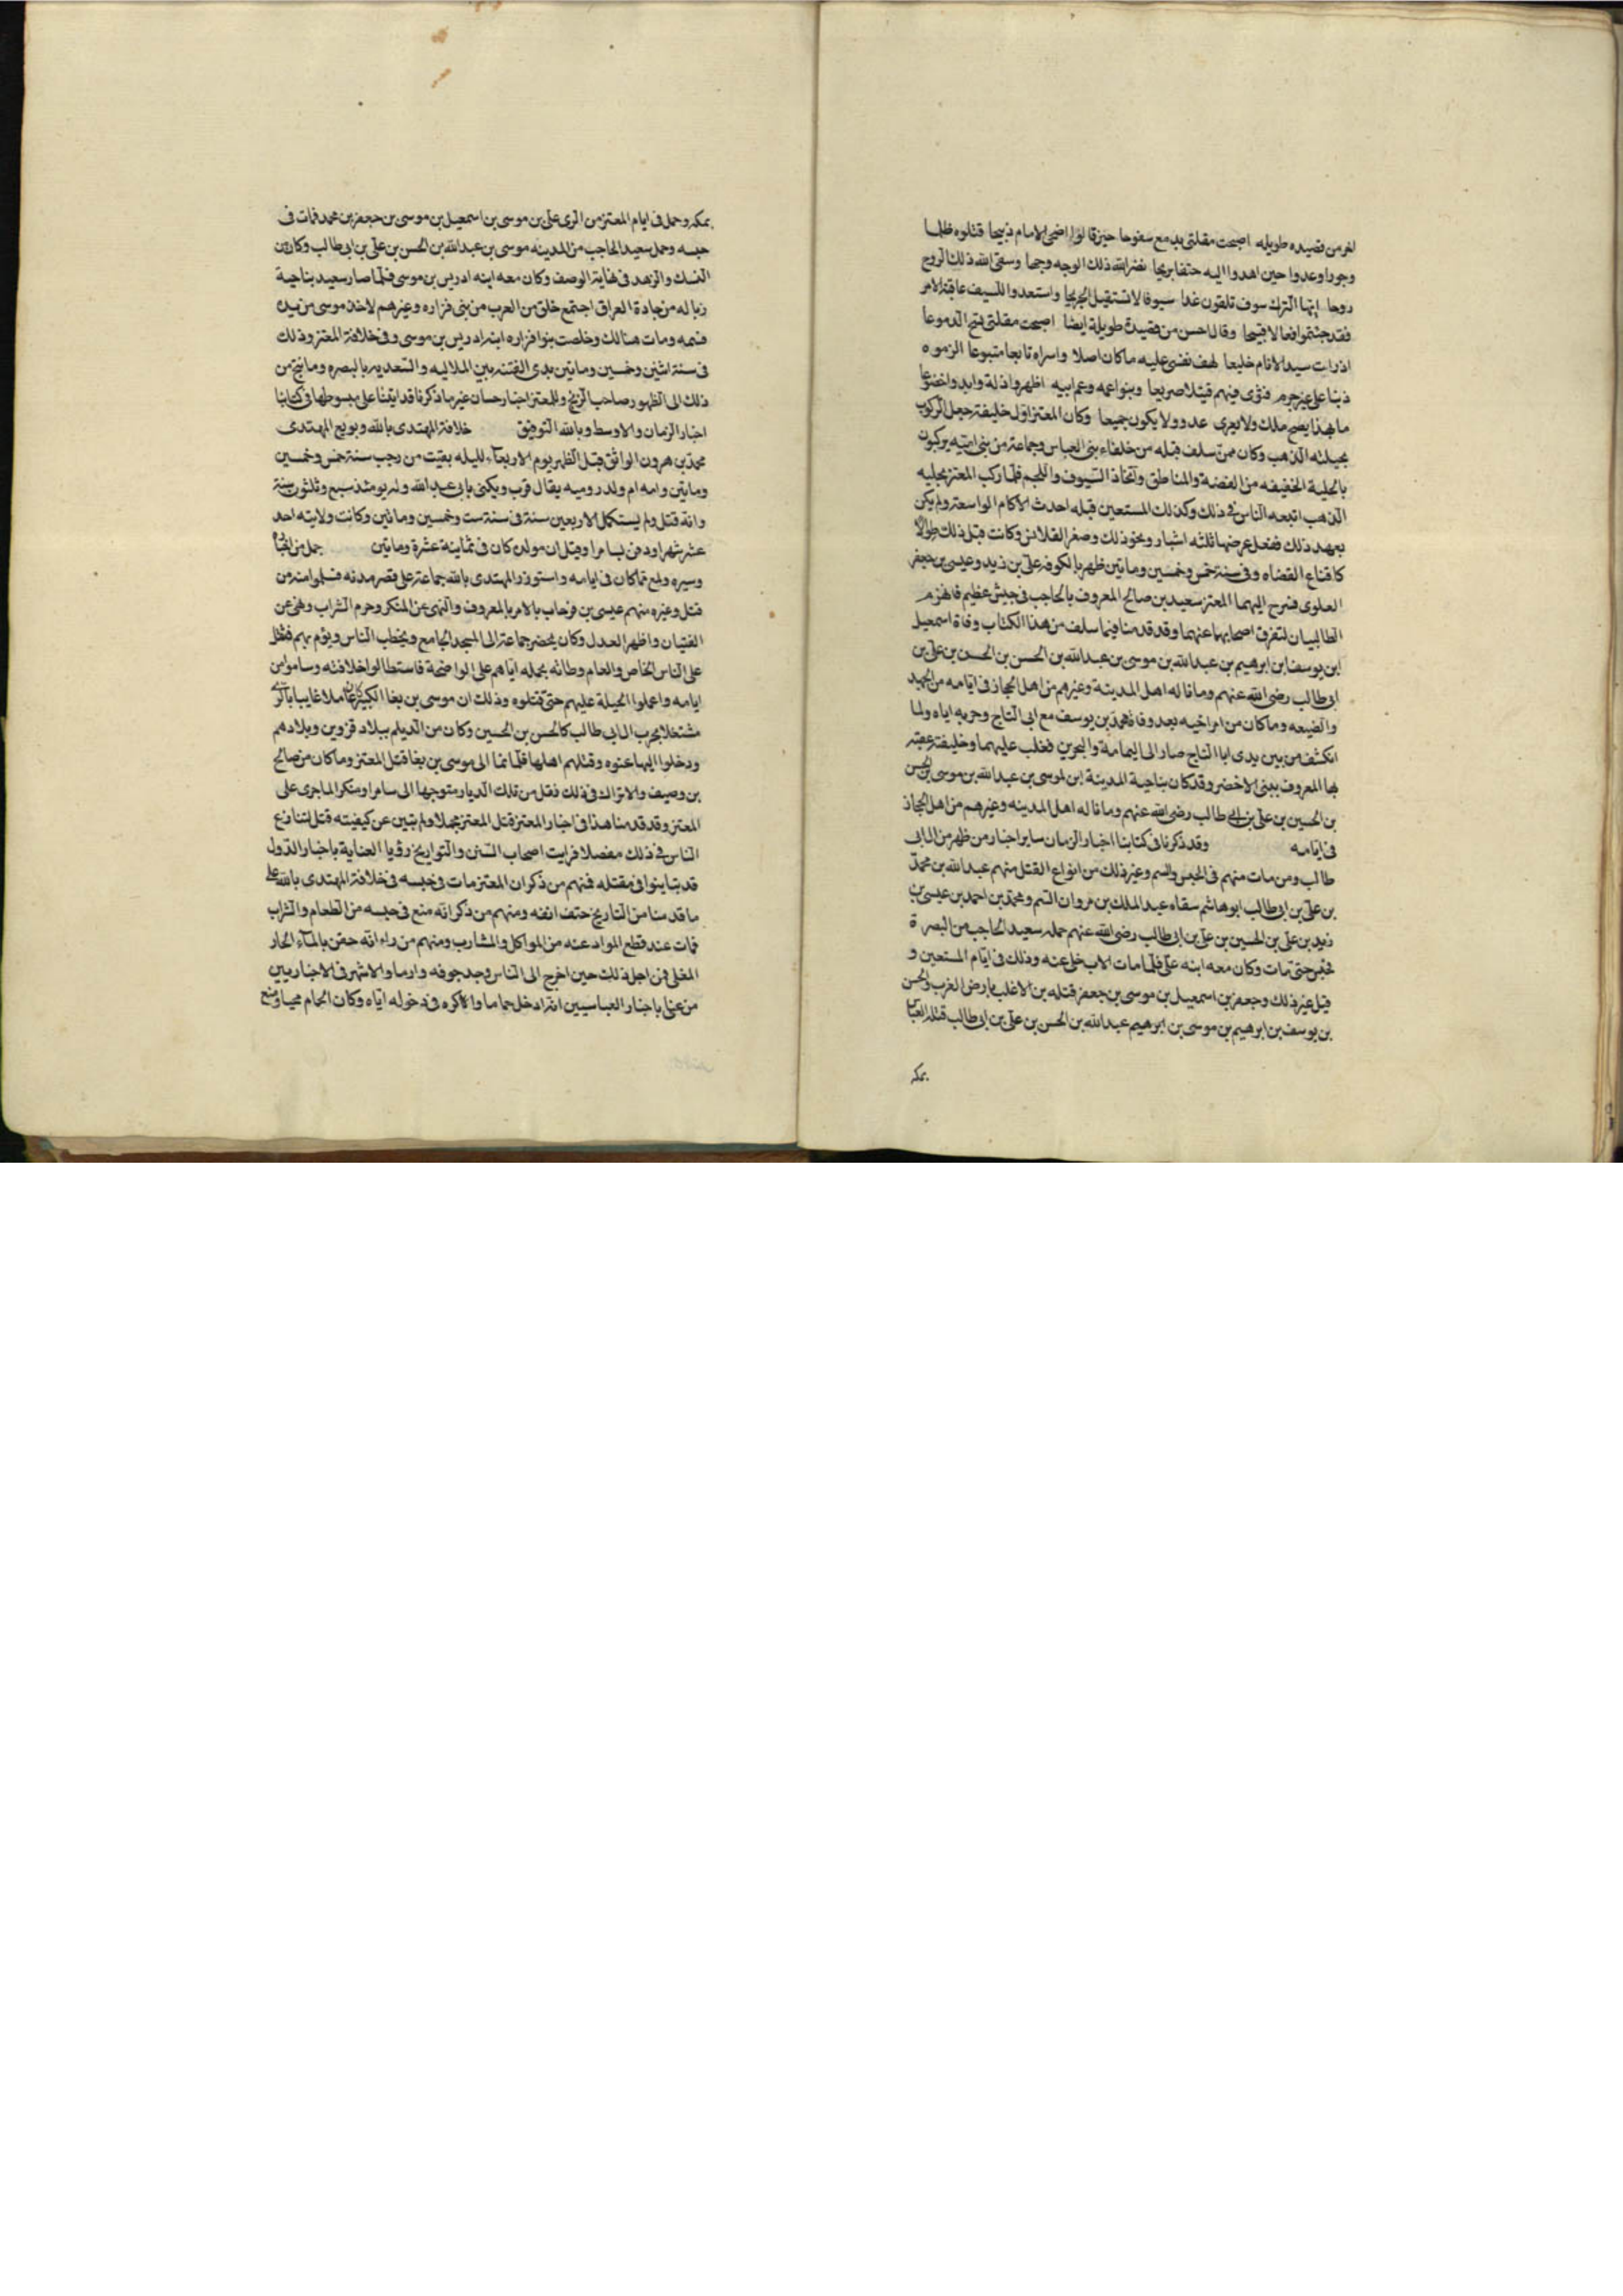 لغر من قصيده طويله اصبحت مقلتى بدمع سفوحا حين قالوا اضحى الامام ذبيحا قتلوه ظلما
وجورا وعدوا حين اهدوا اليه حتفا بريحا نضر الله ذلك الوجه وجها وسقى الله ذلك الروح
روحا ايها الترك سوف تلقون غدا سيوفا لا تستقيل الجريحا واستعدوا للسيف عاقبة الامر
فقد جئتموا فعالا قبيحا وقال احسن من قصيدة طويلة ايضا اصبحت مقلتى تسح الدموعا
اذ رات سيد الانام خليعا لهف نفسى عليه ما كان اصلا واسراه تابعا متبوعا الزموه
ذنبا على غير جرم فثوى فيهم قتيلا صريعا وبنوا عمه وعم ابيه اظهروا ذلة وابدوا خضوعا
ما بهذا يصح ملك ولا يغزى عدو ولا يكون جميعا وكان المعتز اول خليفة جعل الركوب
بحيلته الذهب وكان ممن سلف قبله من خلفاء بنى العباس وجماعة من بنى امية يركبون
بالحلية الخفيفه من الفضة والمناطق واتخاذ السيوف واللجم فلما ركب المعتز بحليه
الذهب اتبعه الناس فى ذلك وكذلك المستعين قبله احدث الاكمام الواسعة ولم يكن
يعهد ذلك فجعل عرضها ثلثه اشبار ونحو ذلك وصغر القلانس وكانت قبل ذلك طوالا
كاقناع القضاه وفى سنة خمس وخمسين وماتين ظهر بالكوفة على بن زيد وعيسى بن جعفر
العلوى فسرح اليهما المعتز سعيد بن صالح المعروف بالحاجب فى جيش عظيم فانهزم
الطالبيان لتفرق اصحابهما عنهما وقد قدمنا فيما سلف من هذا الكتاب وفاة اسمعيل
ابن يوسف ابن ابرهيم بن عبد الله بن موسى بن عبد الله بن الحسن بن الحسن بن على بن
ابى طالب رضى الله عنهم وما ناله اهل المدينة وغيرهم من اهل الحجاز فى ايامه من الجهد
والضيعه وما كان من امر اخيه بعد وفاة محمد بن يوسف مع ابى الساج وحربه اياه ولما
انكشف من بين يدى ابا الساج صار الى اليمامة والبحرين فغلب عليهما وخليفة عقبه
بها المعروف ببنى الاخضر وقد كان بناحية المدينة ابن لموسى بن عبد الله بن موسى بن الحسن
بن الحسين بن على بن ابى طالب رضى الله عنهم وما ناله اهل المدينه وغيرهم من اهل الحجاز
فى ايامه وقد ذكرنا فى كتابنا اخبار الزمان ساير اخبار من ظهر من ال ابى
طالب ومن مات منهم فى الحبس والسم وغير ذلك من انواع القتل منهم عبد الله بن محمد
بن على بن ابى طالب ابو هاشم سقاه عبد الملك بن مروان السم ومحمد بن احمد بن عيسى بن
زيد بن على بن الحسين بن على بن ابى طالب رضى الله عنهم حمله سعيد الحاجب من البصرة
فحبس حتى مات وكان معه ابنه على فلما مات الاب خلى عنه وذلك فى ايام المستعين و
قيل غير ذلك وجعفر بن اسمعيل بن موسى بن جعفر قتله بن الاغلب بارض الغرب والحسن
بن يوسف بن ابرهيم بن موسى بن ابرهيم عبد الله بن الحسن بن على بن ابى طالب قتله العباس
بمكه
بمكه وحمل فى ايام المعتز من الرى على بن موسى بن اسمعيل بن موسى بن جعفر بن محمد فمات فى
حبسه وحمل سعيد الحاجب من المدينه موسى بن عبد الله بن الحسن بن على بن ابى طالب وكان من
النسك والزهد فى نهاية الوصف وكان معه ابنه ادريس بن موسى فلما صار سعيد بناحية
زباله من جادة العراق اجتمع خلق من العرب من بنى فزاره وغيرهم لاخذ موسى من يده
فسمه ومات هنالك وخلصت بنوا فزاره ابنه ادريس بن موسى وفى خلافة المعتز وذلك
فى سنة اثنين وخمسين وماتين بدى الفتنه بين البلاليه والسعديه بالبصره وما نتج من
ذلك الى ظهور صاحب الزنج وللمعتز اخبار حسان غير ما ذكرنا قد اتينا على مبسوطها فى كتابنا
اخبار الزمان والاوسط وبالله التوفيق خلافة المهتدى بالله وبويع المهتدى
محمد بن هرون الواثق قبل الظهر يوم الاربعاء لليله بقيت من رجب سنة خمس وخمسين
وماتين وامه ام ولد روميه يقال قرب ويكنى بابى عبد الله وله يومئذ سبع وثلثون سنة
وانه قتل ولم يستكمل الاربعين سنة فى سنة ست وخمسين ومائتين وكانت ولايته احد
عشر شهرا ودفن بسامرا وقيل ان مولده كان فى ثمانية عشرة وماتين جمل من اخباره
وسيره ولمع مما كان فى ايامه واستوزر المهتدى بالله جماعة على قصر مدته فسلموا منه من
قتل وغيره منهم عيسى بن فرخاب بالامر بالمعروف والنهى عن المنكر وحرم الشراب ونهى عن
القيان واظهر العدل وكان يحضر جماعة الى المسجد الجامع ويخطب الناس ويؤم بهم فثقل
على الناس الخاص والعام وطاته بحمله اياهم على الواضحة فاستطالوا خلافته وساموا من
ايامه واعملوا الحيلة عليهم حتى قتلوه وذلك ان موسى بن بغا الكبير كان عاملا غايبا بالرى
مشتغلا بحرب ال ابى طالب كالحسن بن الحسين وكان من الديلم ببلاد قزوين وبلادهم
ودخلوا اليها عنوه وقتلهم اهلها فلما نما الى موسى بن بغا قتل المعتز وما كان من صالح
بن وصيف والاتراك فى ذلك فقل من تلك الديار متوجها الى سامرا ومنكرا لما جرى على
المعتز وقد قدمنا هذا فى اخبار المعتز قتل المعتز مجملا ولم يتبين عن كيفيته قتل لتنازع
الناس فى ذلك مفصلا فرايت اصحاب السنن والتواريخ رؤيا العناية باخبار الدول
قد تباينوا فى مقتله فمنهم من ذكر ان المعتز مات فى حبسه فى خلافة المهتدى بالله على
ما قدمنا من التاريخ حتف انفه ومنهم من ذكر انه منع فى حبسه من الطعام والشراب
فمات عند قطع المواد عنه من المواكل والمشارب ومنهم من راء انه حقن بالماء الحار
المغلى فمن اجل ذلك حين اخرج الى الناس وجد جوفه وارما والاشهر فى الاخباريين
من عنى باخبار العباسيين انه ادخل حماما والاكره فى دخوله اياه وكان الحمام محميا ومنع